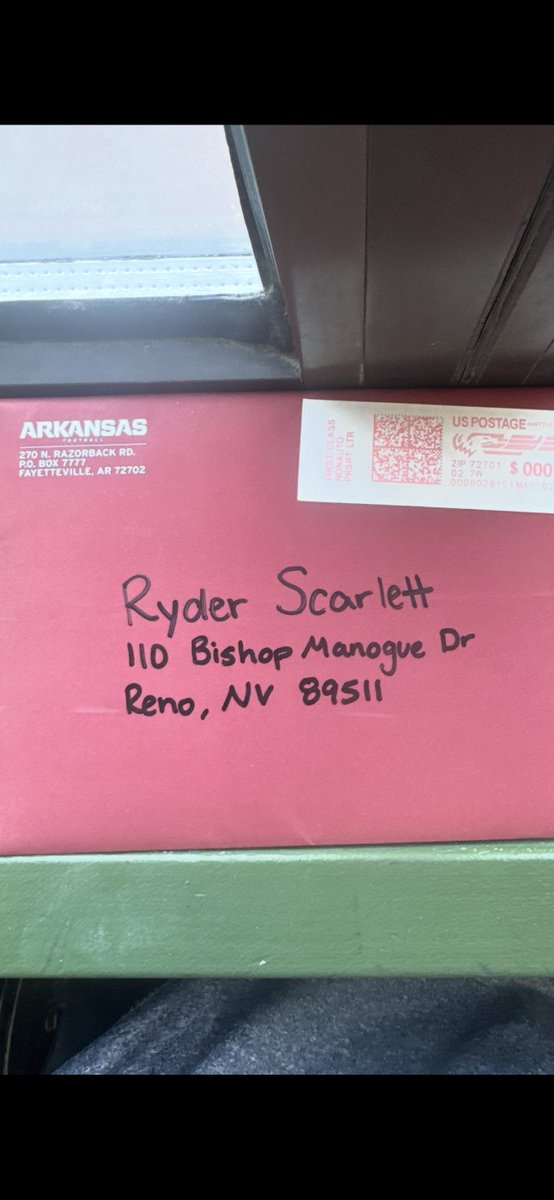 ARKANSAS
FOOTBALL
270 N. RAZORBACK RD.
P.O. BOX 7777
FAYETTEVILLE, AR 72702
FIRST-CLASS
NONAUTO
PRSRT LTR
US POSTAGE
ZIP 72701
02 7W
$ 000
0008029151 MAY 02
Ryder Scarlett
110 Bishop Manogue Dr
Reno, NV 89511